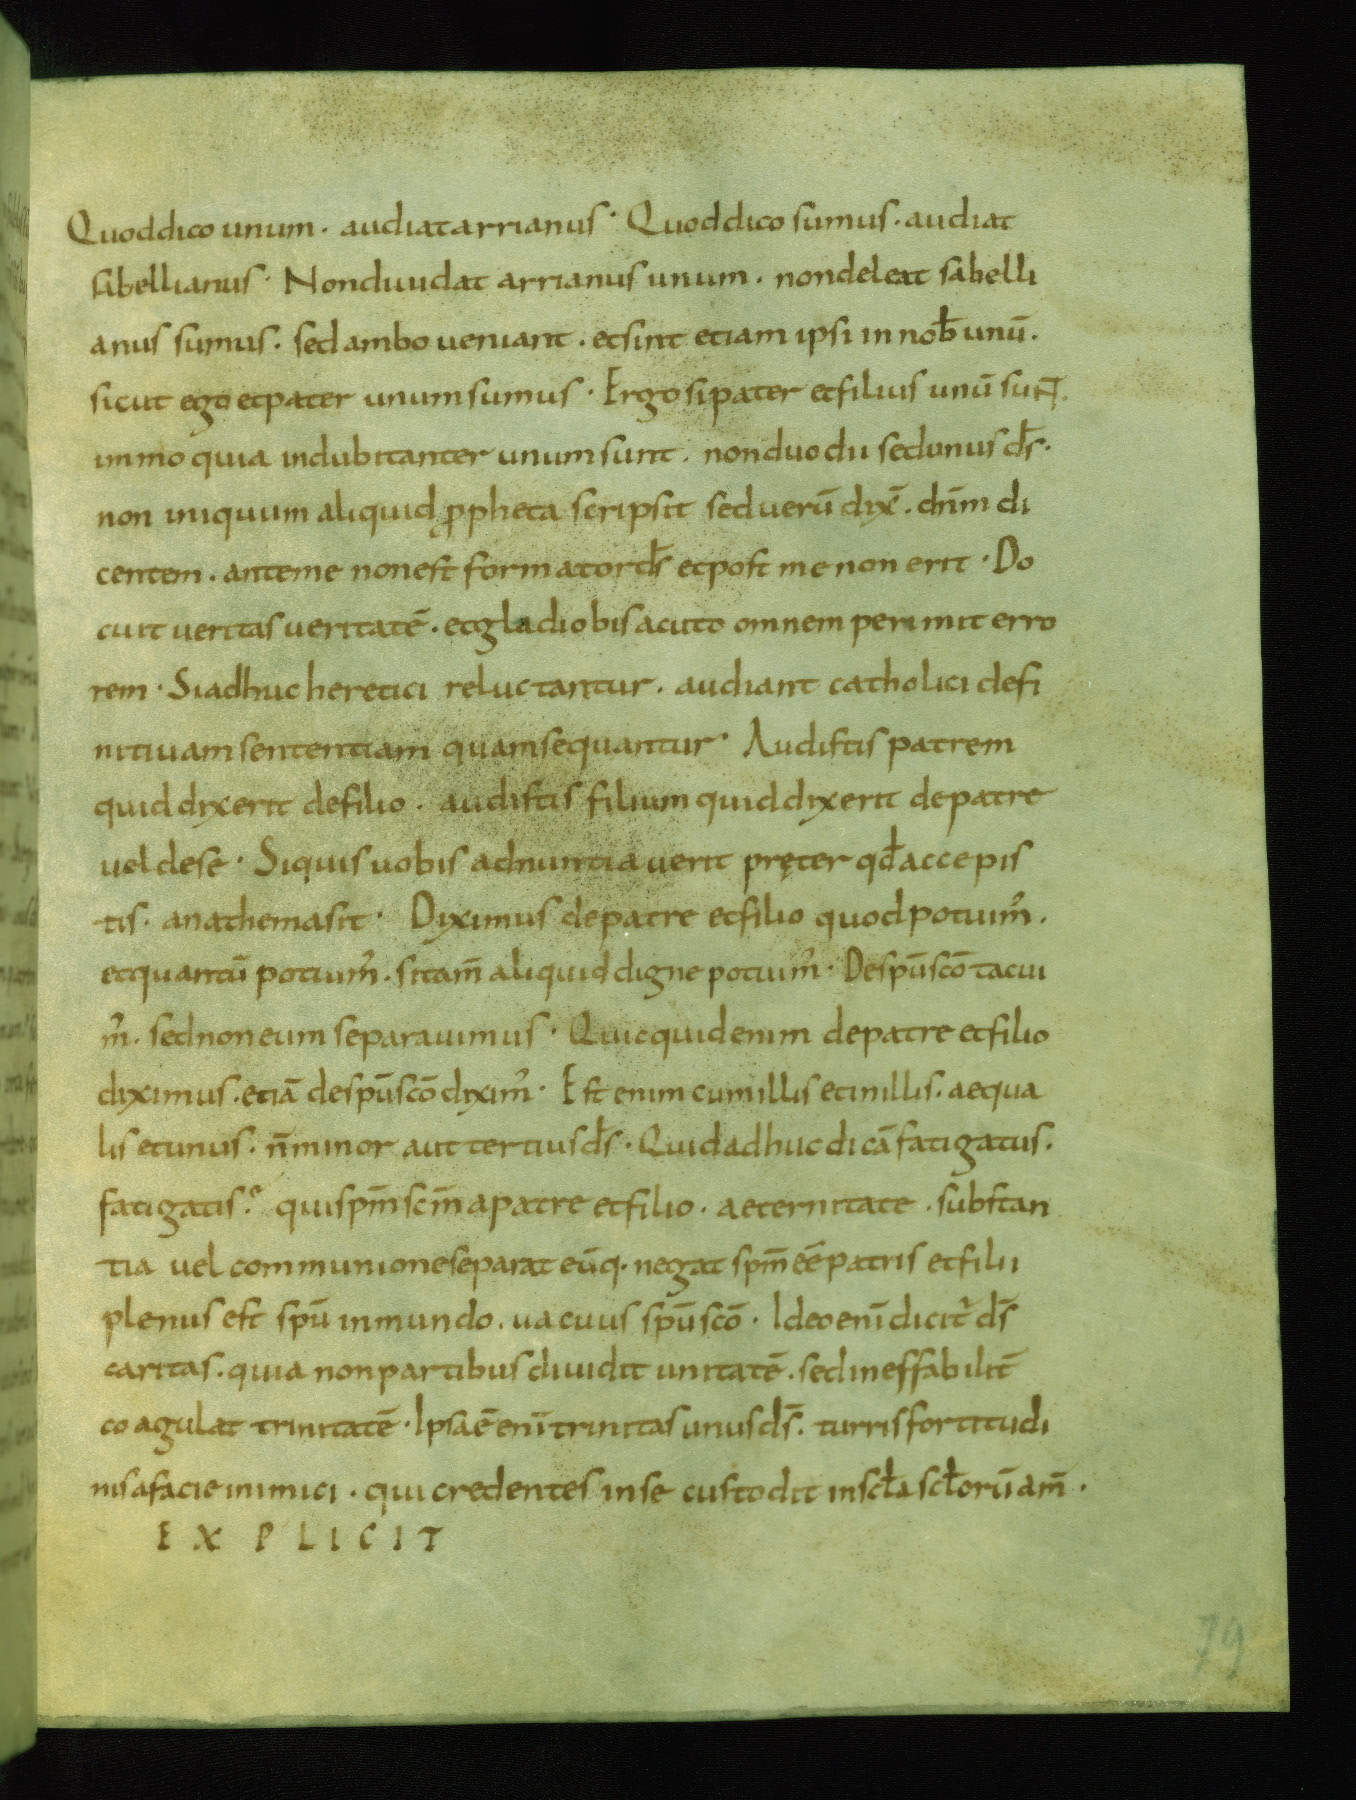 Quod dico unum · audiat arrianus · Quod dico sumus · audiat
sabellianus · Non diuidat arrianus unum · non deleat sabelli
anus sumus · sed ambo ueniant · et sint etiam ipsi in nob̄ unū ·
sicut ego et pater unum sumus · Ergo si pater et filius unū sunt ·
immo quia indubitanter unum sunt · non duo dii sed unus ds̄ ·
non iniquum aliquid ꝓpheta scripsit sed uerū dix̄ · dn̄m di
centem · ante me non est formator ds̄ et post me non erit · Do
cuit ueritas ueritatē · et gladio bis acuto omnem perimit erro
rem · Si adhuc heretici reluctantur · audiant catholici defi
nitiuam sententiam quam sequantur · Audistis patrem
quid dixerit de filio · audistis filium quid dixerit de patre
uel de se · Si quis uobis adnuntiauerit pręter qd̄ accepis
tis · anathema sit · Diximus de patre et filio quod potuim᾽ ·
et quantū potuim᾽ · si tam̄ aliquid digne potuim᾽ · De spū scō tacui
m᾽ · sed non eum separauimus · Quicquid enim de patre et filio
diximus · etiā de spū scō dixim᾽ · Est enim cum illis et in illis · aequa
lis et unus · n̄ minor aut tertius ds̄ · Quid adhuc dicā fatigatus ·
fatigatis? qui spm̄ scm̄ a patre et filio · aeternitate · substan
tia uel communione separat eūq· negat spm̄ eē patris et filii
plenus est spū inmundo · uacuus spū scō · Ideo enī dicit᾽ ds̄
caritas · quia non partibus diuidit unitatē · sed ineffabilit̄
coagulat trinitatē · Ipsa ē enī trinitas unus ds̄ · turris fortitudi
nis a facie inimici · qui credentes in se custodit in scl̄a scl̄orū am̄ ·
EXPLICIT
79